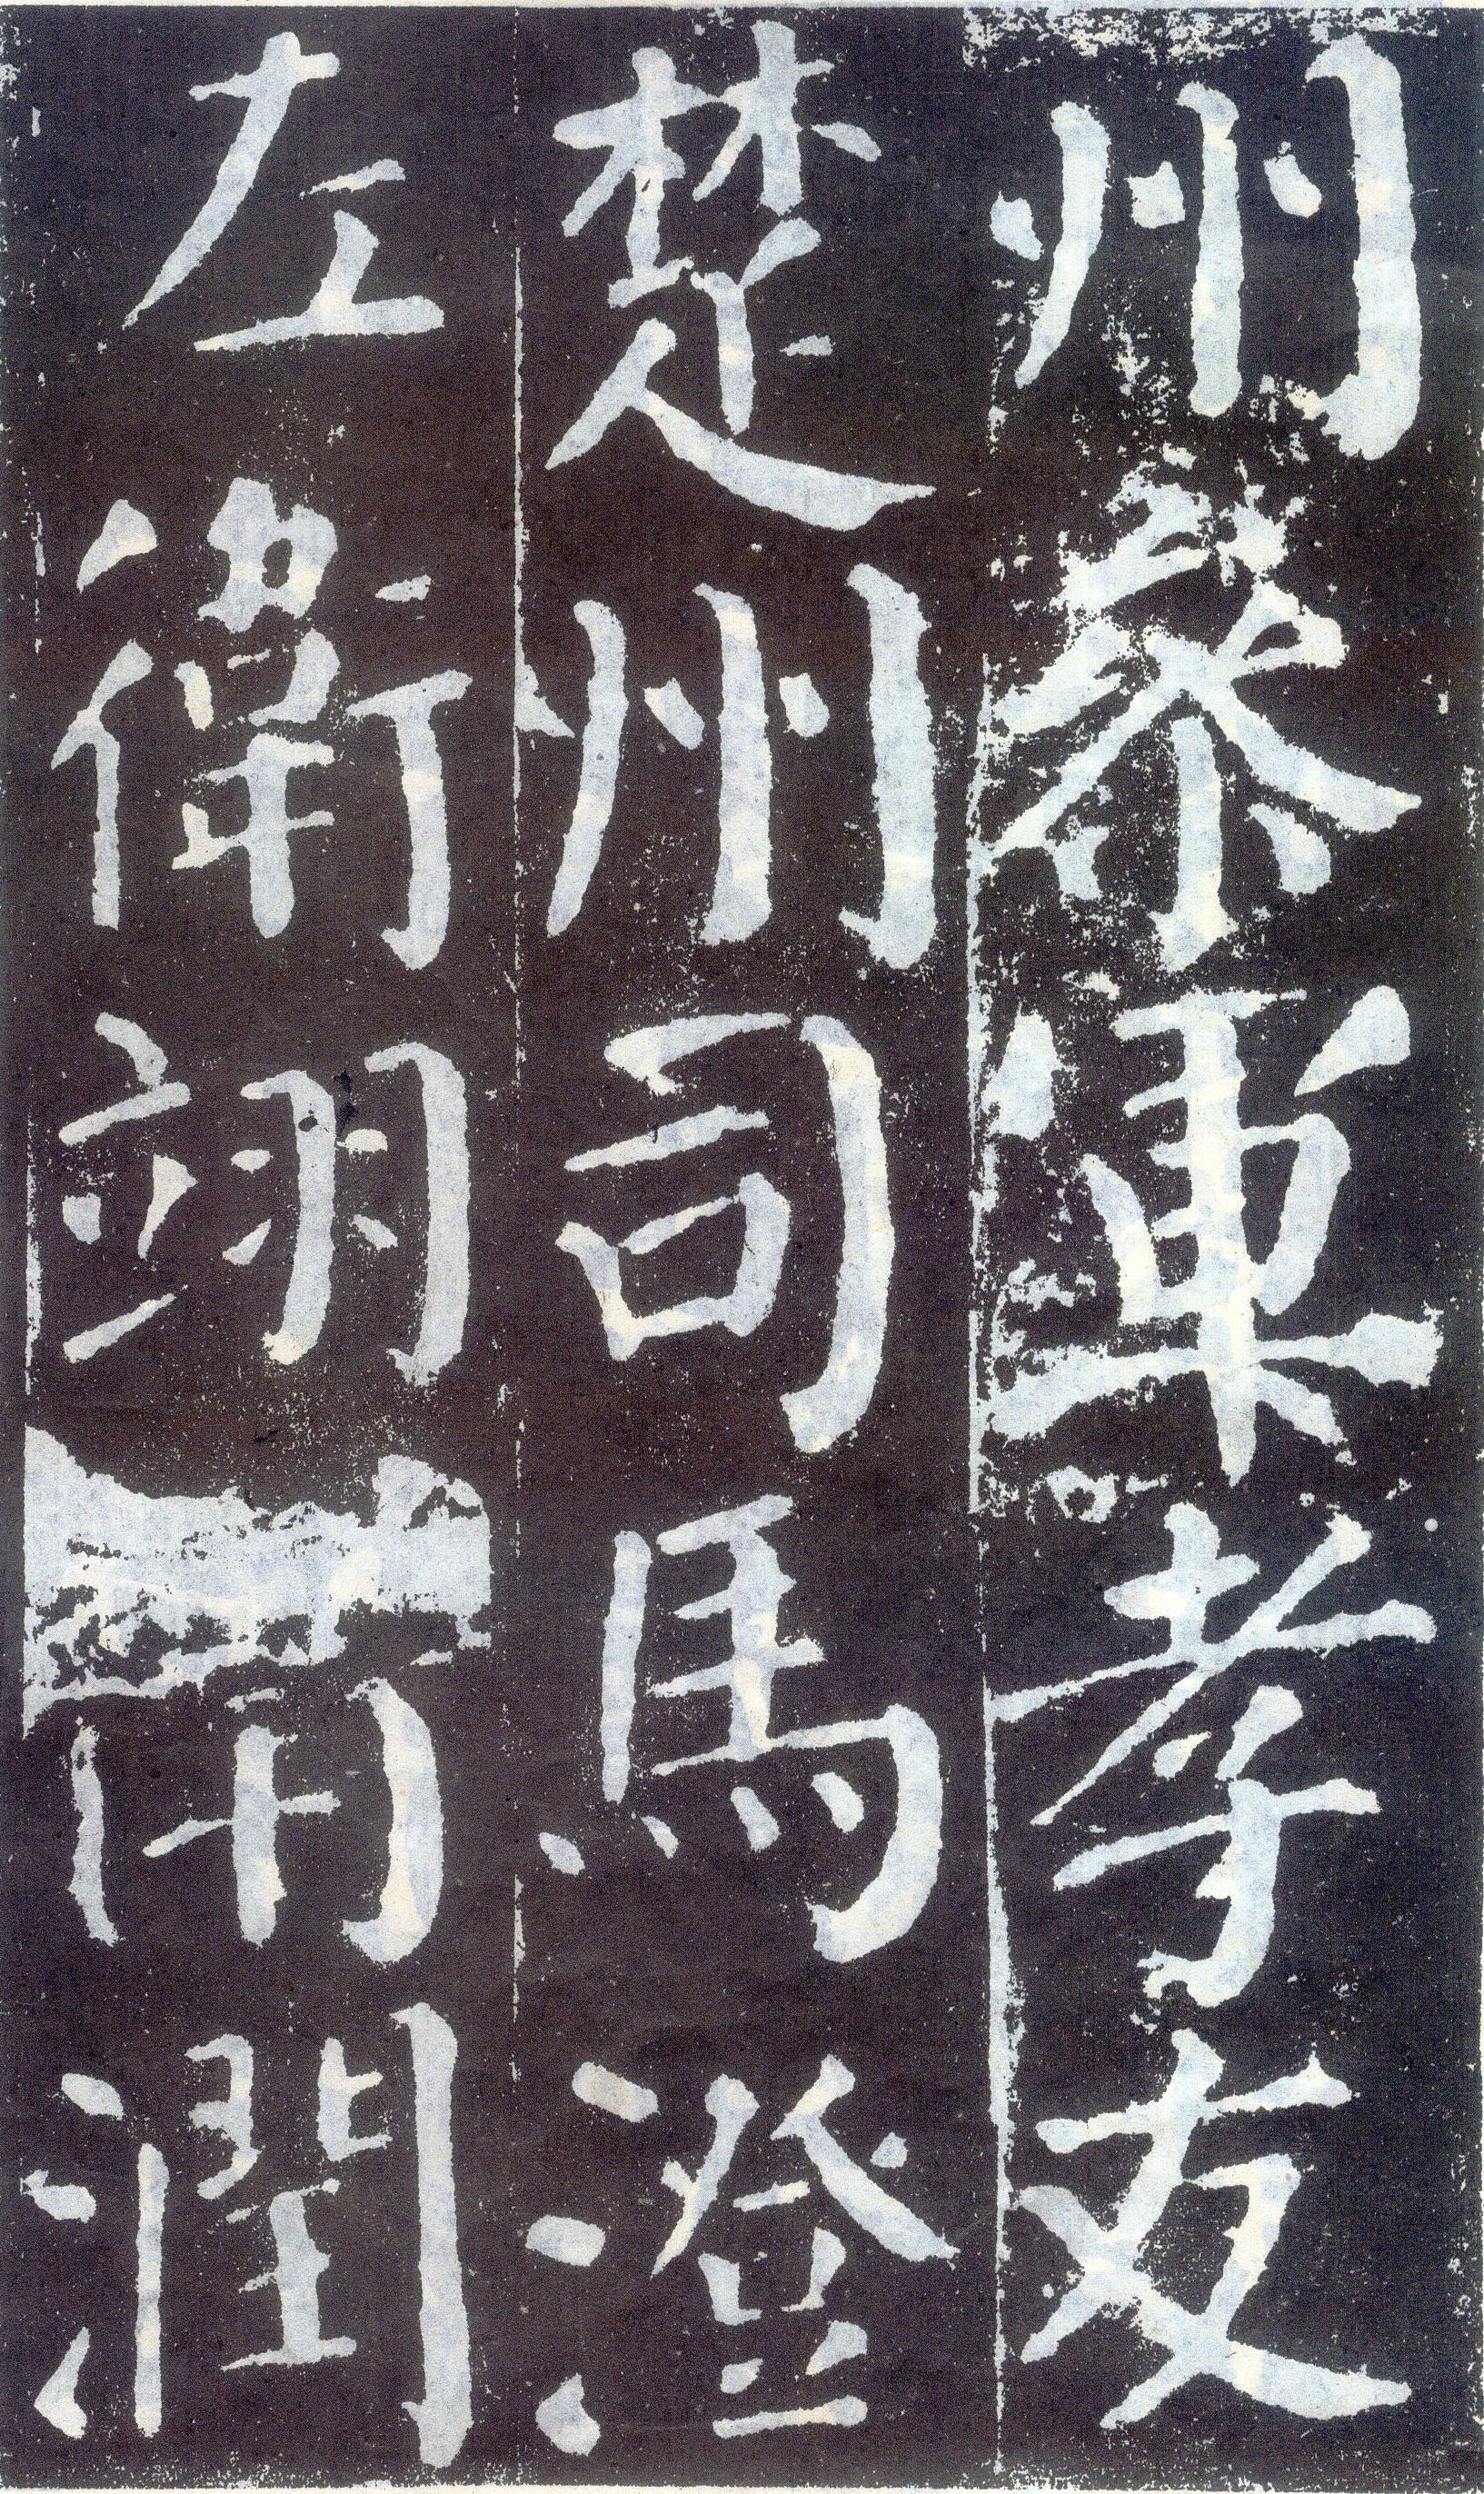 州叅軍孝友
楚州司馬澄
左衛翊衛潤